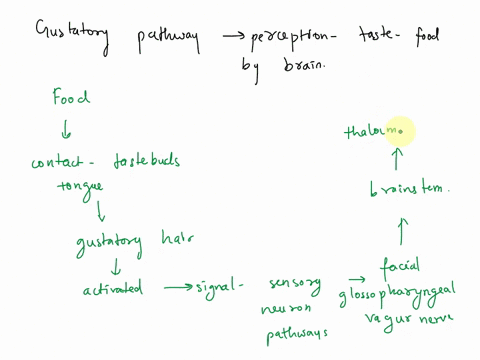 Gustatory pathway → perception- taste- food
by brain.
Food
↓
contact- tastebuds
tongue
↓
gustatory hair
↓
activated → signal- sensory
neuron
pathways
→ facial
glossopharyngeal
vagur nerve
↑
brainstem.
↑
thalam.